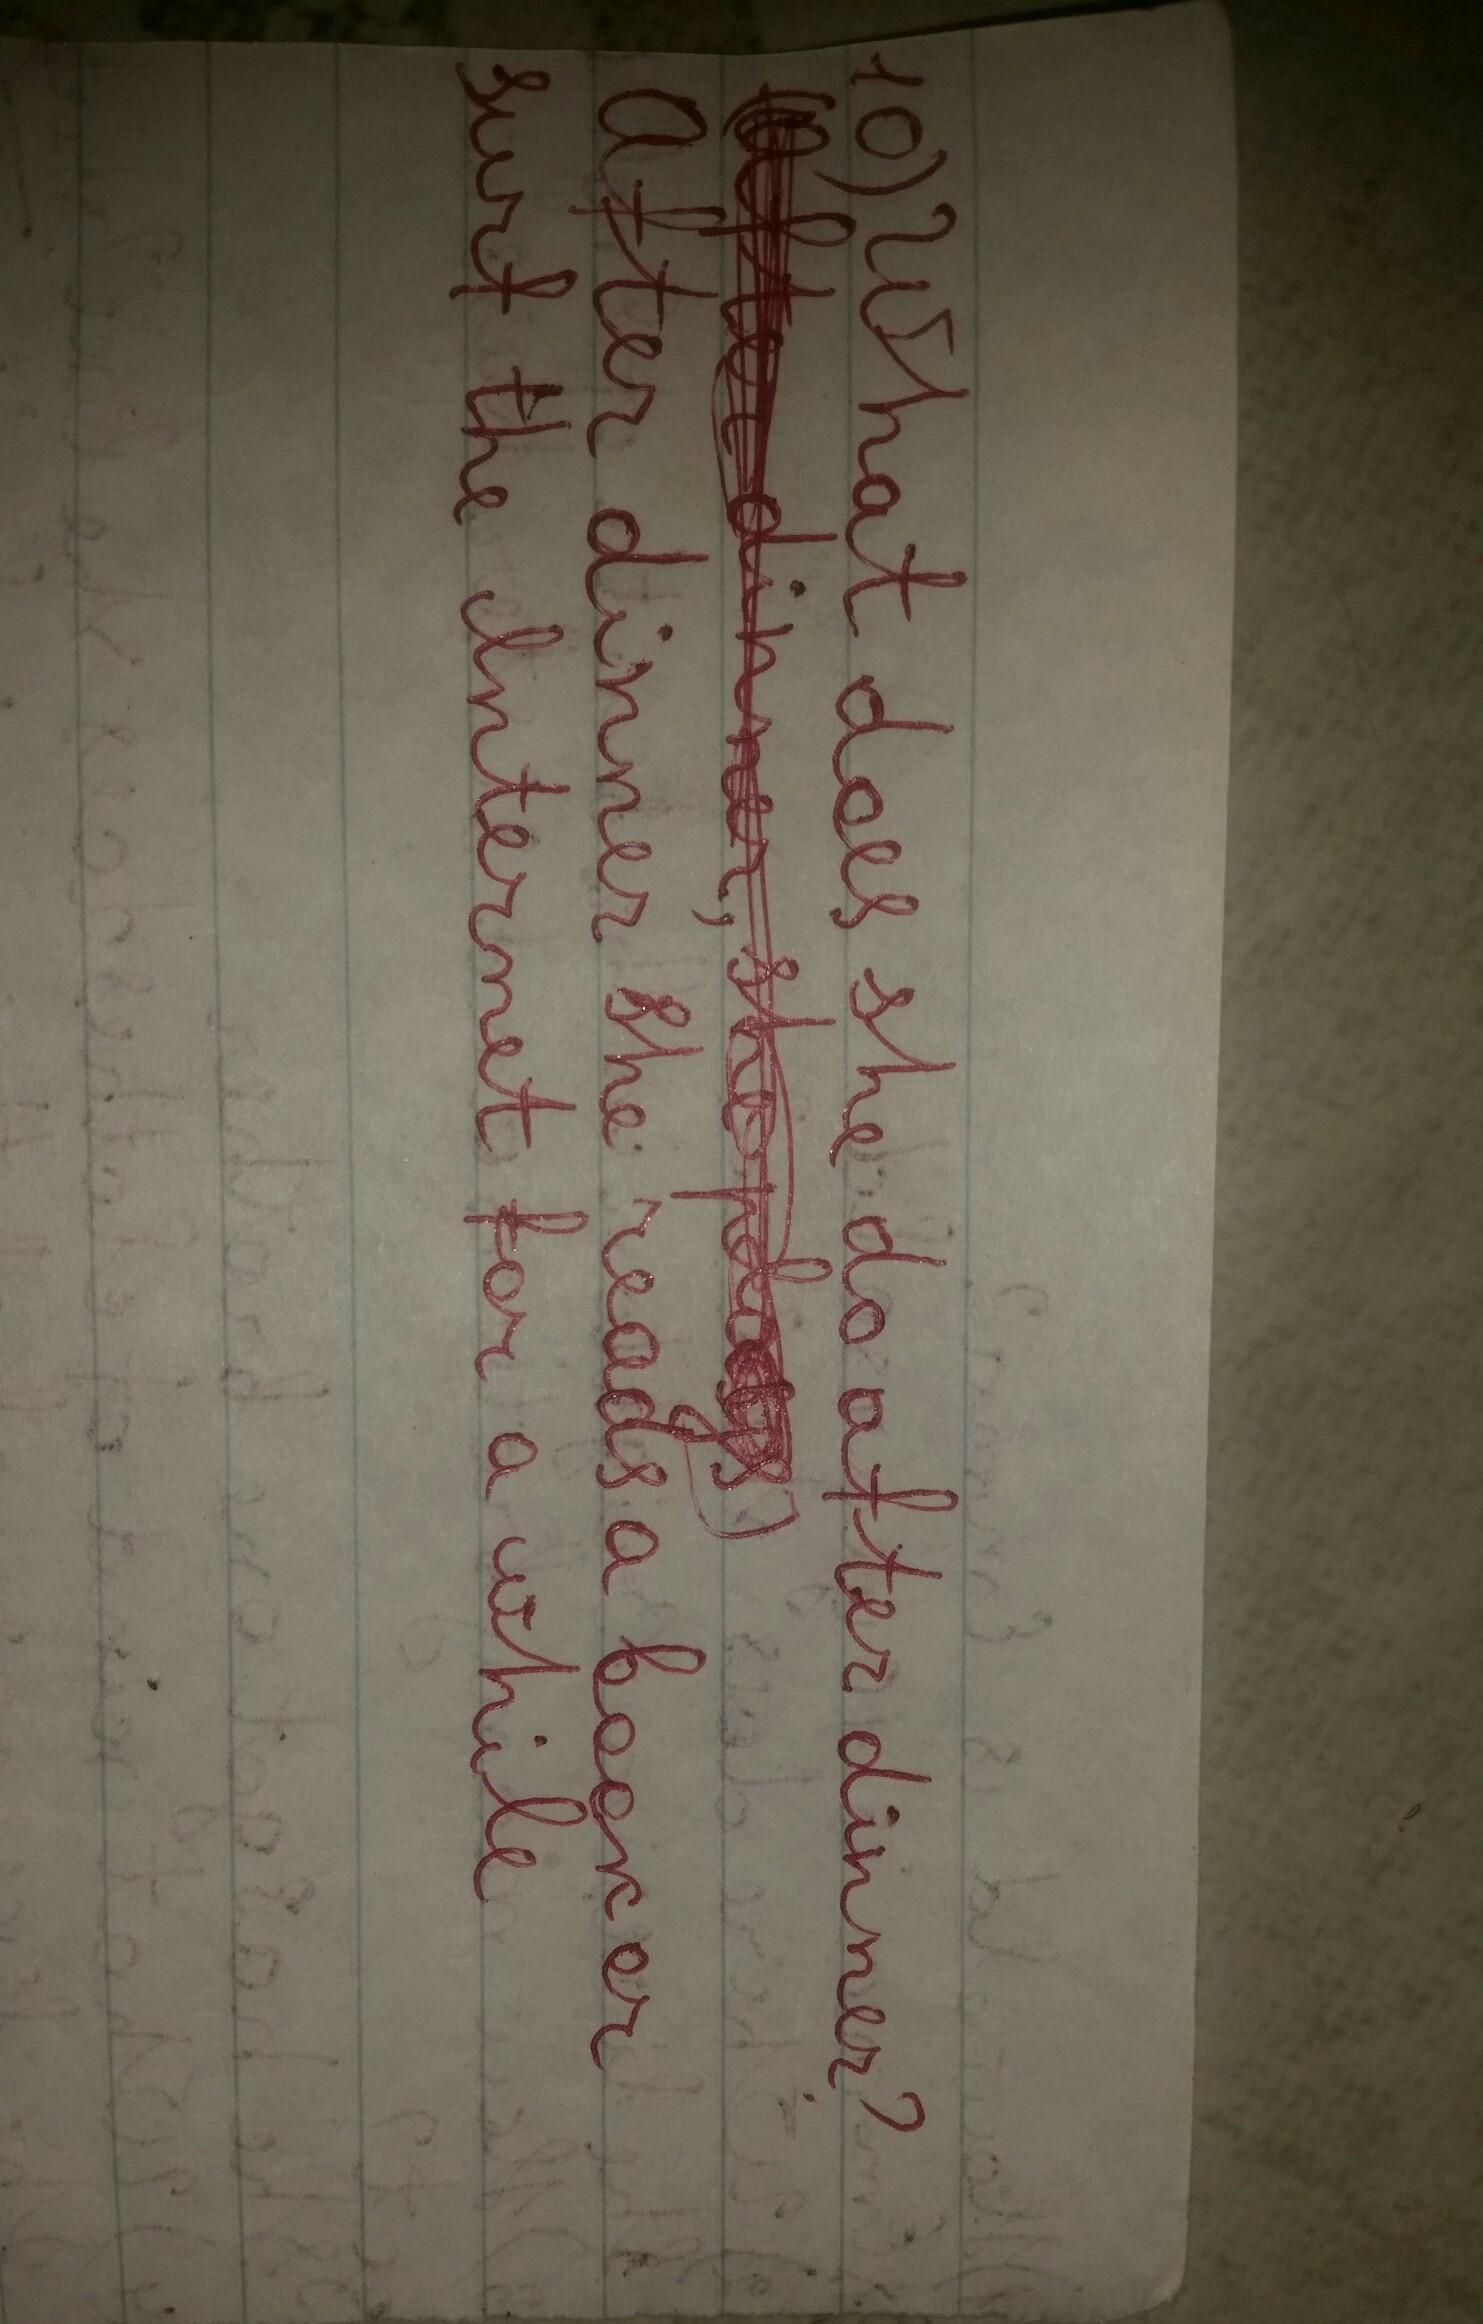 10) What does she do after dinner?
After dinner, she plays
After dinner she reads a book or
surf the Internet for a while